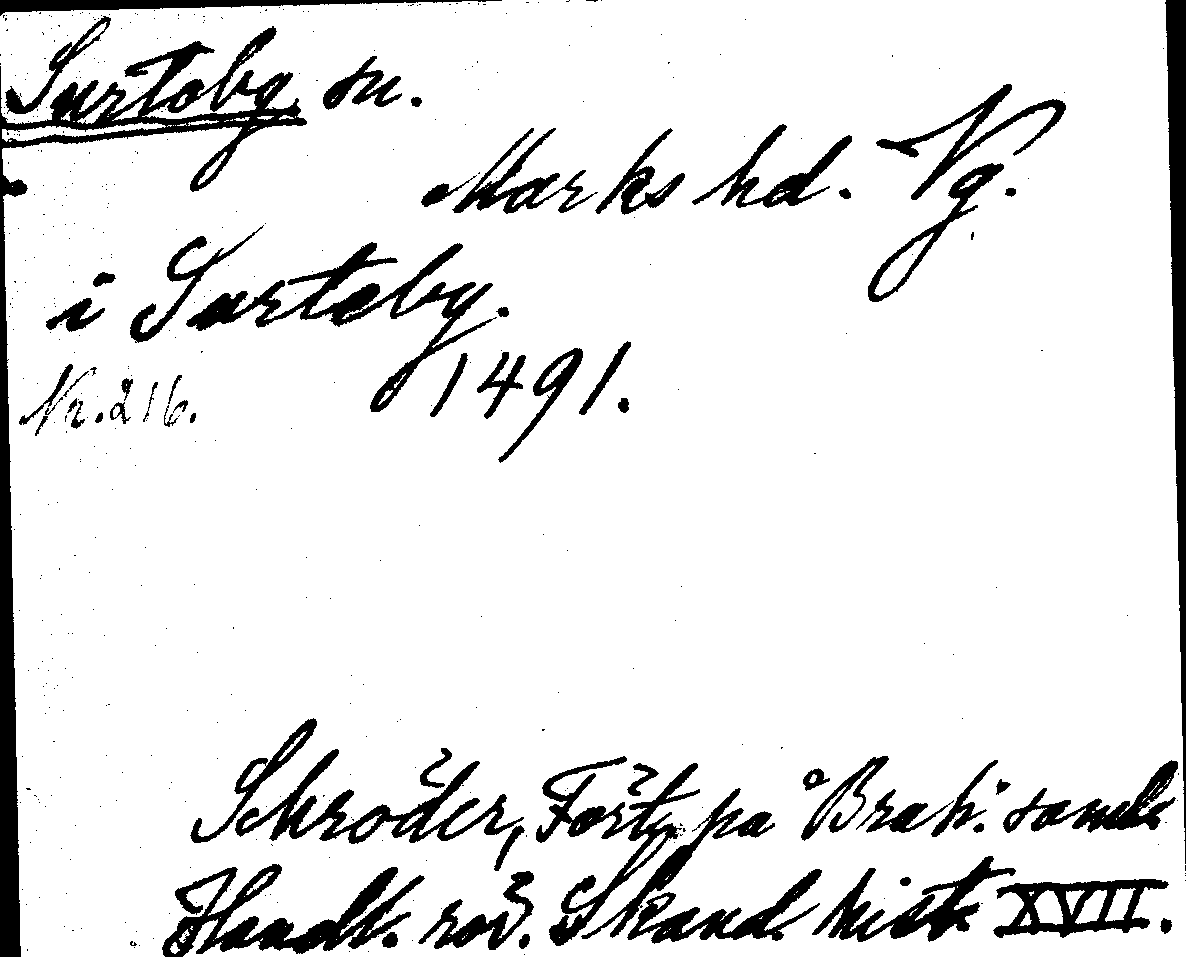 Surteby sn.
Marks hd. Vg.
i Surteby.
1491.
Nr. 216.
Schröder, Fört. på Brah. saml.
Handl. rör. Skand. hist. XVII.